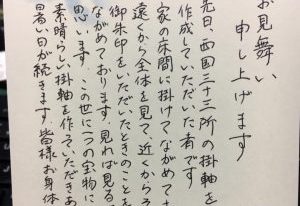 お見舞い
申し上げます
先日、西国三十三所の掛軸を
作成していただいた者です
家の床間に掛けてながめて
遠くから全体を見て、近くから
御朱印をいただいたときのことを
ながめております。見れば見る
思います。この世に一つの宝物に
素晴らしい掛軸を作っていただきあ
暑い日が続きます。皆様お身体